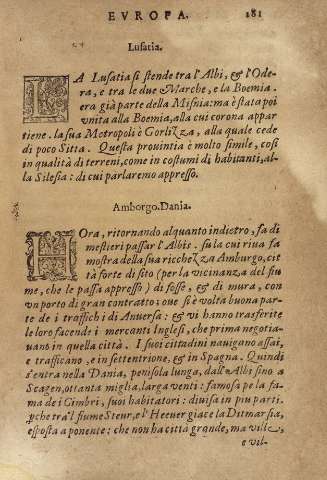 EVROPA. 181
Lusatia.
LA Lusatia si stende tra l'Albi, & l'Ode-
ra, e tra le due Marche, e la Boemia.
era già parte della Misnia: ma è stata poi
vnita alla Boemia, alla cui corona appar
tiene. la sua Metropoli è Gorlizza, alla quale cede
di poco Sitta. Questa prouintia è molto simile, cosi
in qualità di terreni, come in costumi di habitanti, al-
la Silesia: di cui parlaremo appresso.
Amborgo. Dania.
HORA, ritornando alquanto indietro, fa di
mestieri passar l'Albis. su la cui riua fa
mostra della sua ricchezza Amburgo, cit
tà forte di sito (per la vicinanza del fiu
me, che le passa appresso) di fosse, & di mura, con
vn porto di gran contratto: oue si è volta buona par-
te de i traffichi di Anuersa: & vi hanno trasferite
le loro facende i mercanti Inglesi, che prima negotia-
uano in quella città. I suoi cittadini nauigano assai,
e trafficano, e in settentrione, & in Spagna. Quindi
s'entra nella Dania, penisola lunga, dall'Albi sino a
Scagen, ottanta miglia, larga venti: famosa pe la fa-
ma de i Cimbri, suoi habitatori: diuisa in piu parti.
perche tra'l fiume Steur, e l'Heeuer giace la Ditmarsia,
esposta a ponente: che non ha città grande, ma vil-
e vil-